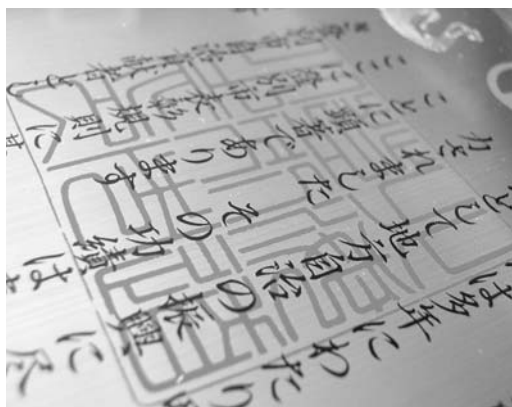 は多年にわたり
として地方自治の振興に尽
力されましたその功績はま
ことに顕著であります
ここに登別市表彰規則に
登別市自治 者とし